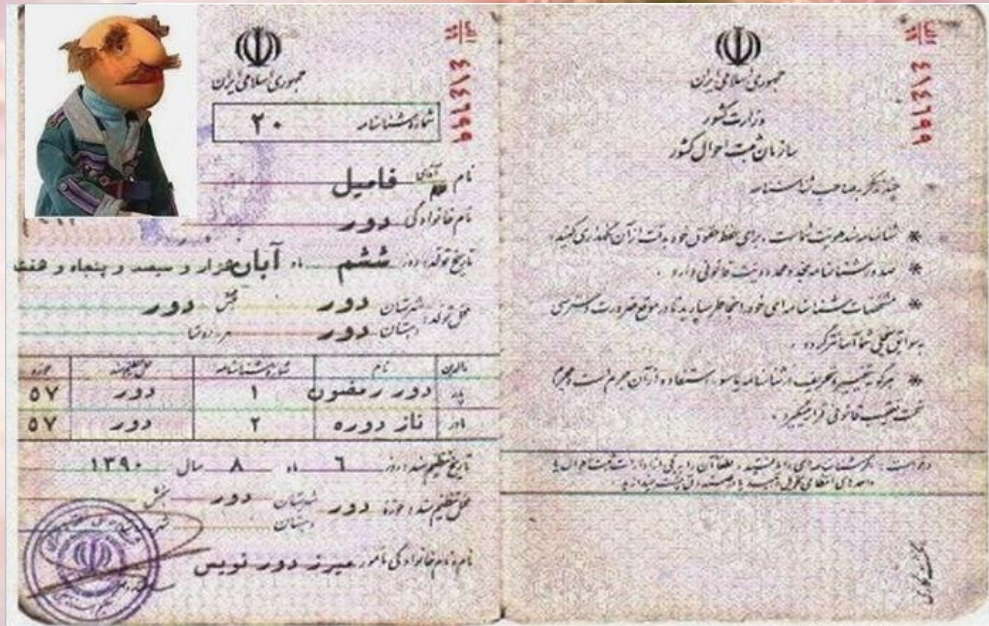 جمهوری اسلامی ایران
وزارت کشور
سازمان ثبت احوال کشور
چند تذکر به صاحب شناسنامه
* شناسنامه سند هویت شماست ، برای حفظ حقوق خود بدقت از آن نگهداری کنید .
* صدور شناسنامه مجدد محدودیت قانونی دارد .
* مشخصات شناسنامه ای خود را بخاطر بسپارید تا در موقع ضرورت دسترسی
به سوابق سجلی شما آسانتر گردد .
* هرگونه تغییر و تحریف در شناسنامه یا سوء استفاده از آن جرم است و مجرم
تحت تعقیب قانونی قرار میگیرد .
الف
۶۱۶۱۹۹
جمهوری اسلامی ایران
شماره شناسنامه ۲۰
نام آقای فامیل
نام خانوادگی دور
تاریخ تولد: روز ششم ماه آبان هزار و سیصد و پنجاه و هفت
محل تولد: شهرستان دور بخش دور
دهستان دور
والدین نام شماره شناسنامه محل تنظیم سند حوزه
پدر دور رمضون ۱ دور ۵۷
مادر ناز دوره ۲ دور ۵۷
تاریخ تنظیم سند: روز ۶ ماه ۸ سال ۱۳۹۰
محل تنظیم سند: حوزه دور شهرستان دور بخش
دهستان شهر
نام و نام خانوادگی مامور میرزا دور نویس